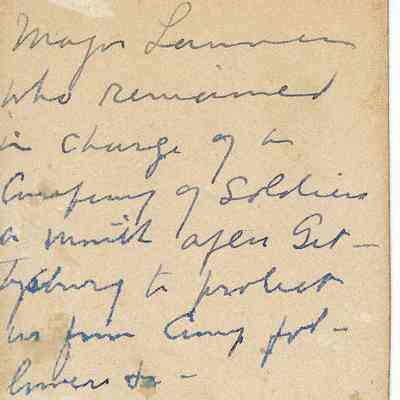 Major Lammen
who remained
in charge of a
Company of Soldiers
a month after Get-
tysburg to protect
us from Camp fol-
lowers &c -